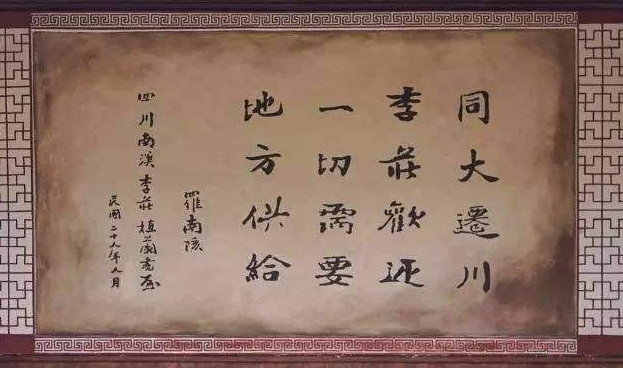 同大遷川
李莊歡迎
一切需要
地方供給
羅南陔
四川南溪李莊植蘭書屋
民國二十九年九月